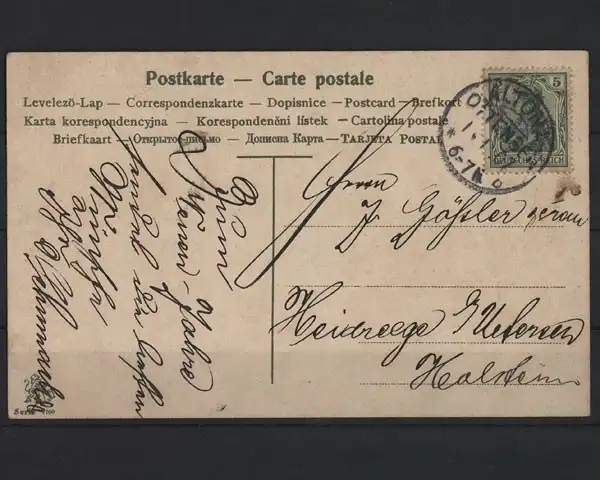 Postkarte — Carte postale
Levelezö-Lap — Correspondenzkarte — Dopisnice — Postcard — Brefkort
Karta korespondencyjna — Korespondenění lístek — Cartolina postale
Briefkaart — Открытое письмо — Дописна Карта — TARJETA POSTAL
5
DEUTSCHES REICH
ALTONA
OTTENSEN
* 6-7N
Zum
Neuen-Jahre
sendet die besten
Herrn
J. Gößler
Heidreege b/Uetersen
Holstein
Serie